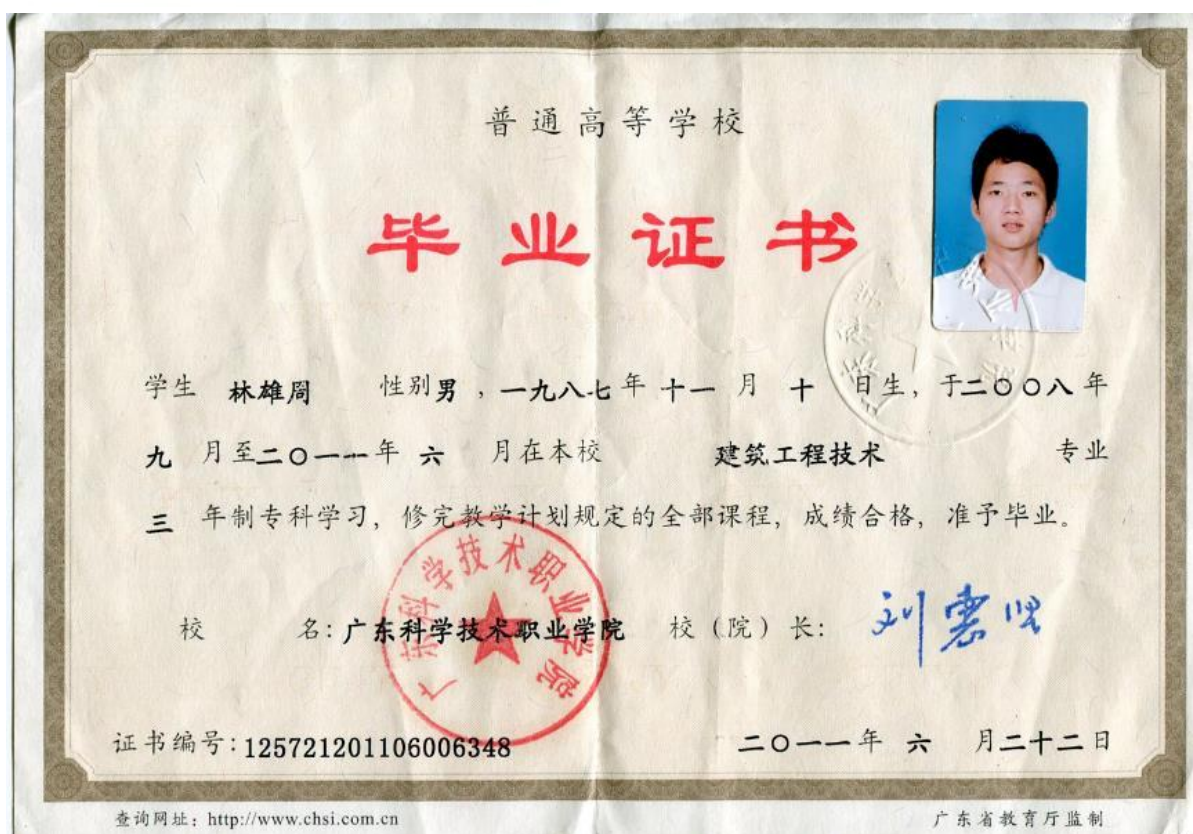 普通高等学校
毕业证书
学生 林雄周 性别 男 , 一九八七年 十一 月 十 日生, 于二〇〇八年
九 月至二〇一一年 六 月在本校 建筑工程技术 专业
三 年制专科学习, 修完教学计划规定的全部课程, 成绩合格, 准予毕业。
广东科学技术职业学院
校 名: 广东科学技术职业学院 校(院)长:
证书编号: 125721201106006348 二〇一一年 六 月二十二日
查询网址: http://www.chsi.com.cn 广东省教育厅监制